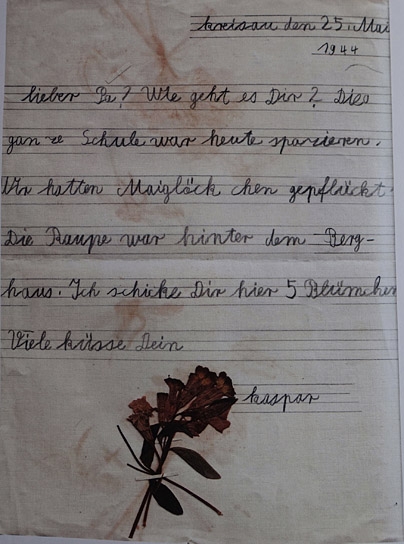 kreisau den 25. Mai
1944
lieber Pa? Wie geht es Dir? Dies
gan ze Schule war heute spazieren.
Wir hatten Maiglöck chen gepflückt.
Die Raupe war hinter dem Berg-
haus. Ich schicke Dir hier 5 Blümchen
Viele küsse Dein
kaspar